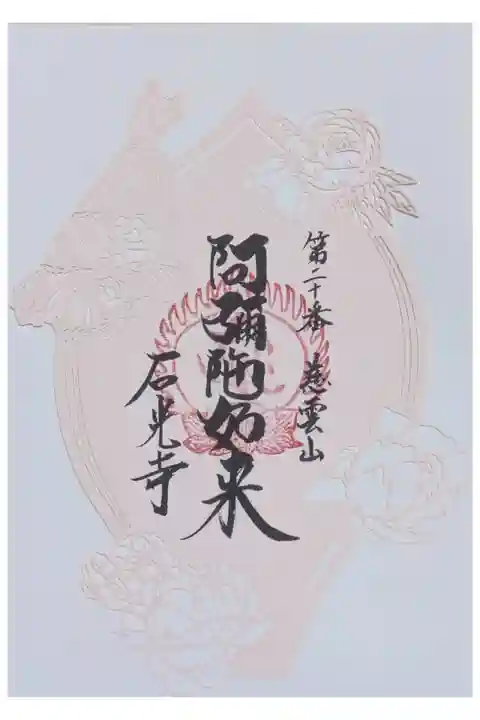 第二十番 慈雲山
阿彌陀如来
石光寺